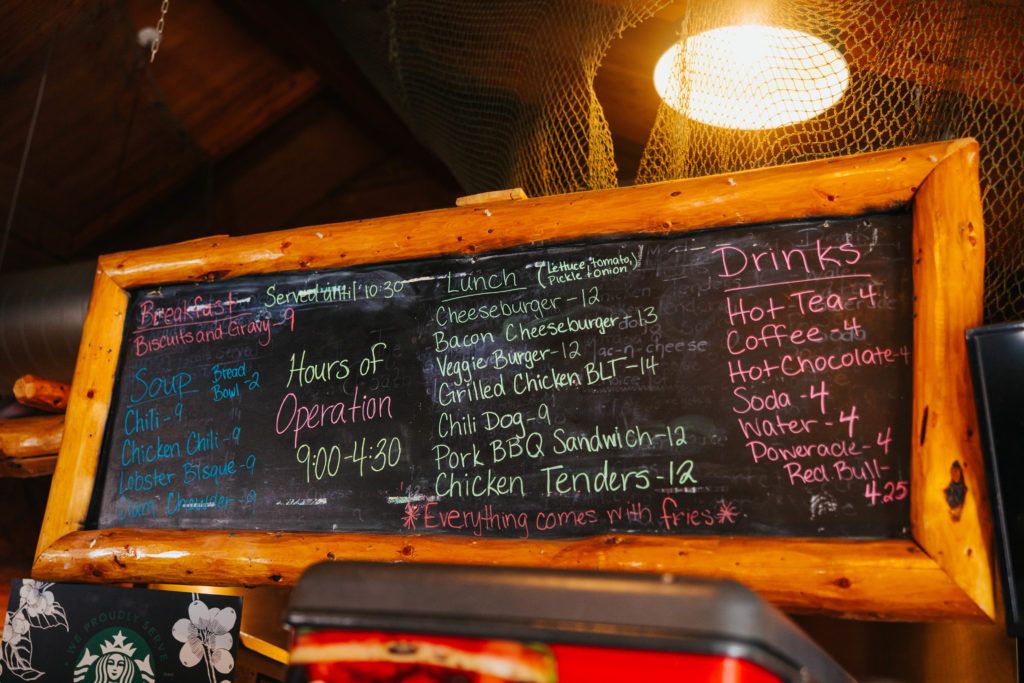 Breakfast Served until 10:30
Biscuits and Gravy - 9
Soup Bread
Bowl - 2
Chili - 9
Chicken Chili - 9
Lobster Bisque - 9
Clam Chowder - 9
Hours of
Operation
9:00-4:30
Lunch (Lettuce, tomato,
Pickle + onion)
Cheeseburger - 12
Bacon Cheeseburger - 13
Veggie Burger - 12
Grilled Chicken BLT - 14
Chili Dog - 9
Pork BBQ Sandwich - 12
Chicken Tenders - 12
*Everything comes with fries*
Drinks
Hot Tea - 4
Coffee - 4
Hot Chocolate - 4
Soda - 4
Water - 4
Powerade - 4
Red Bull -
4.25
WE PROUDLY SERVE